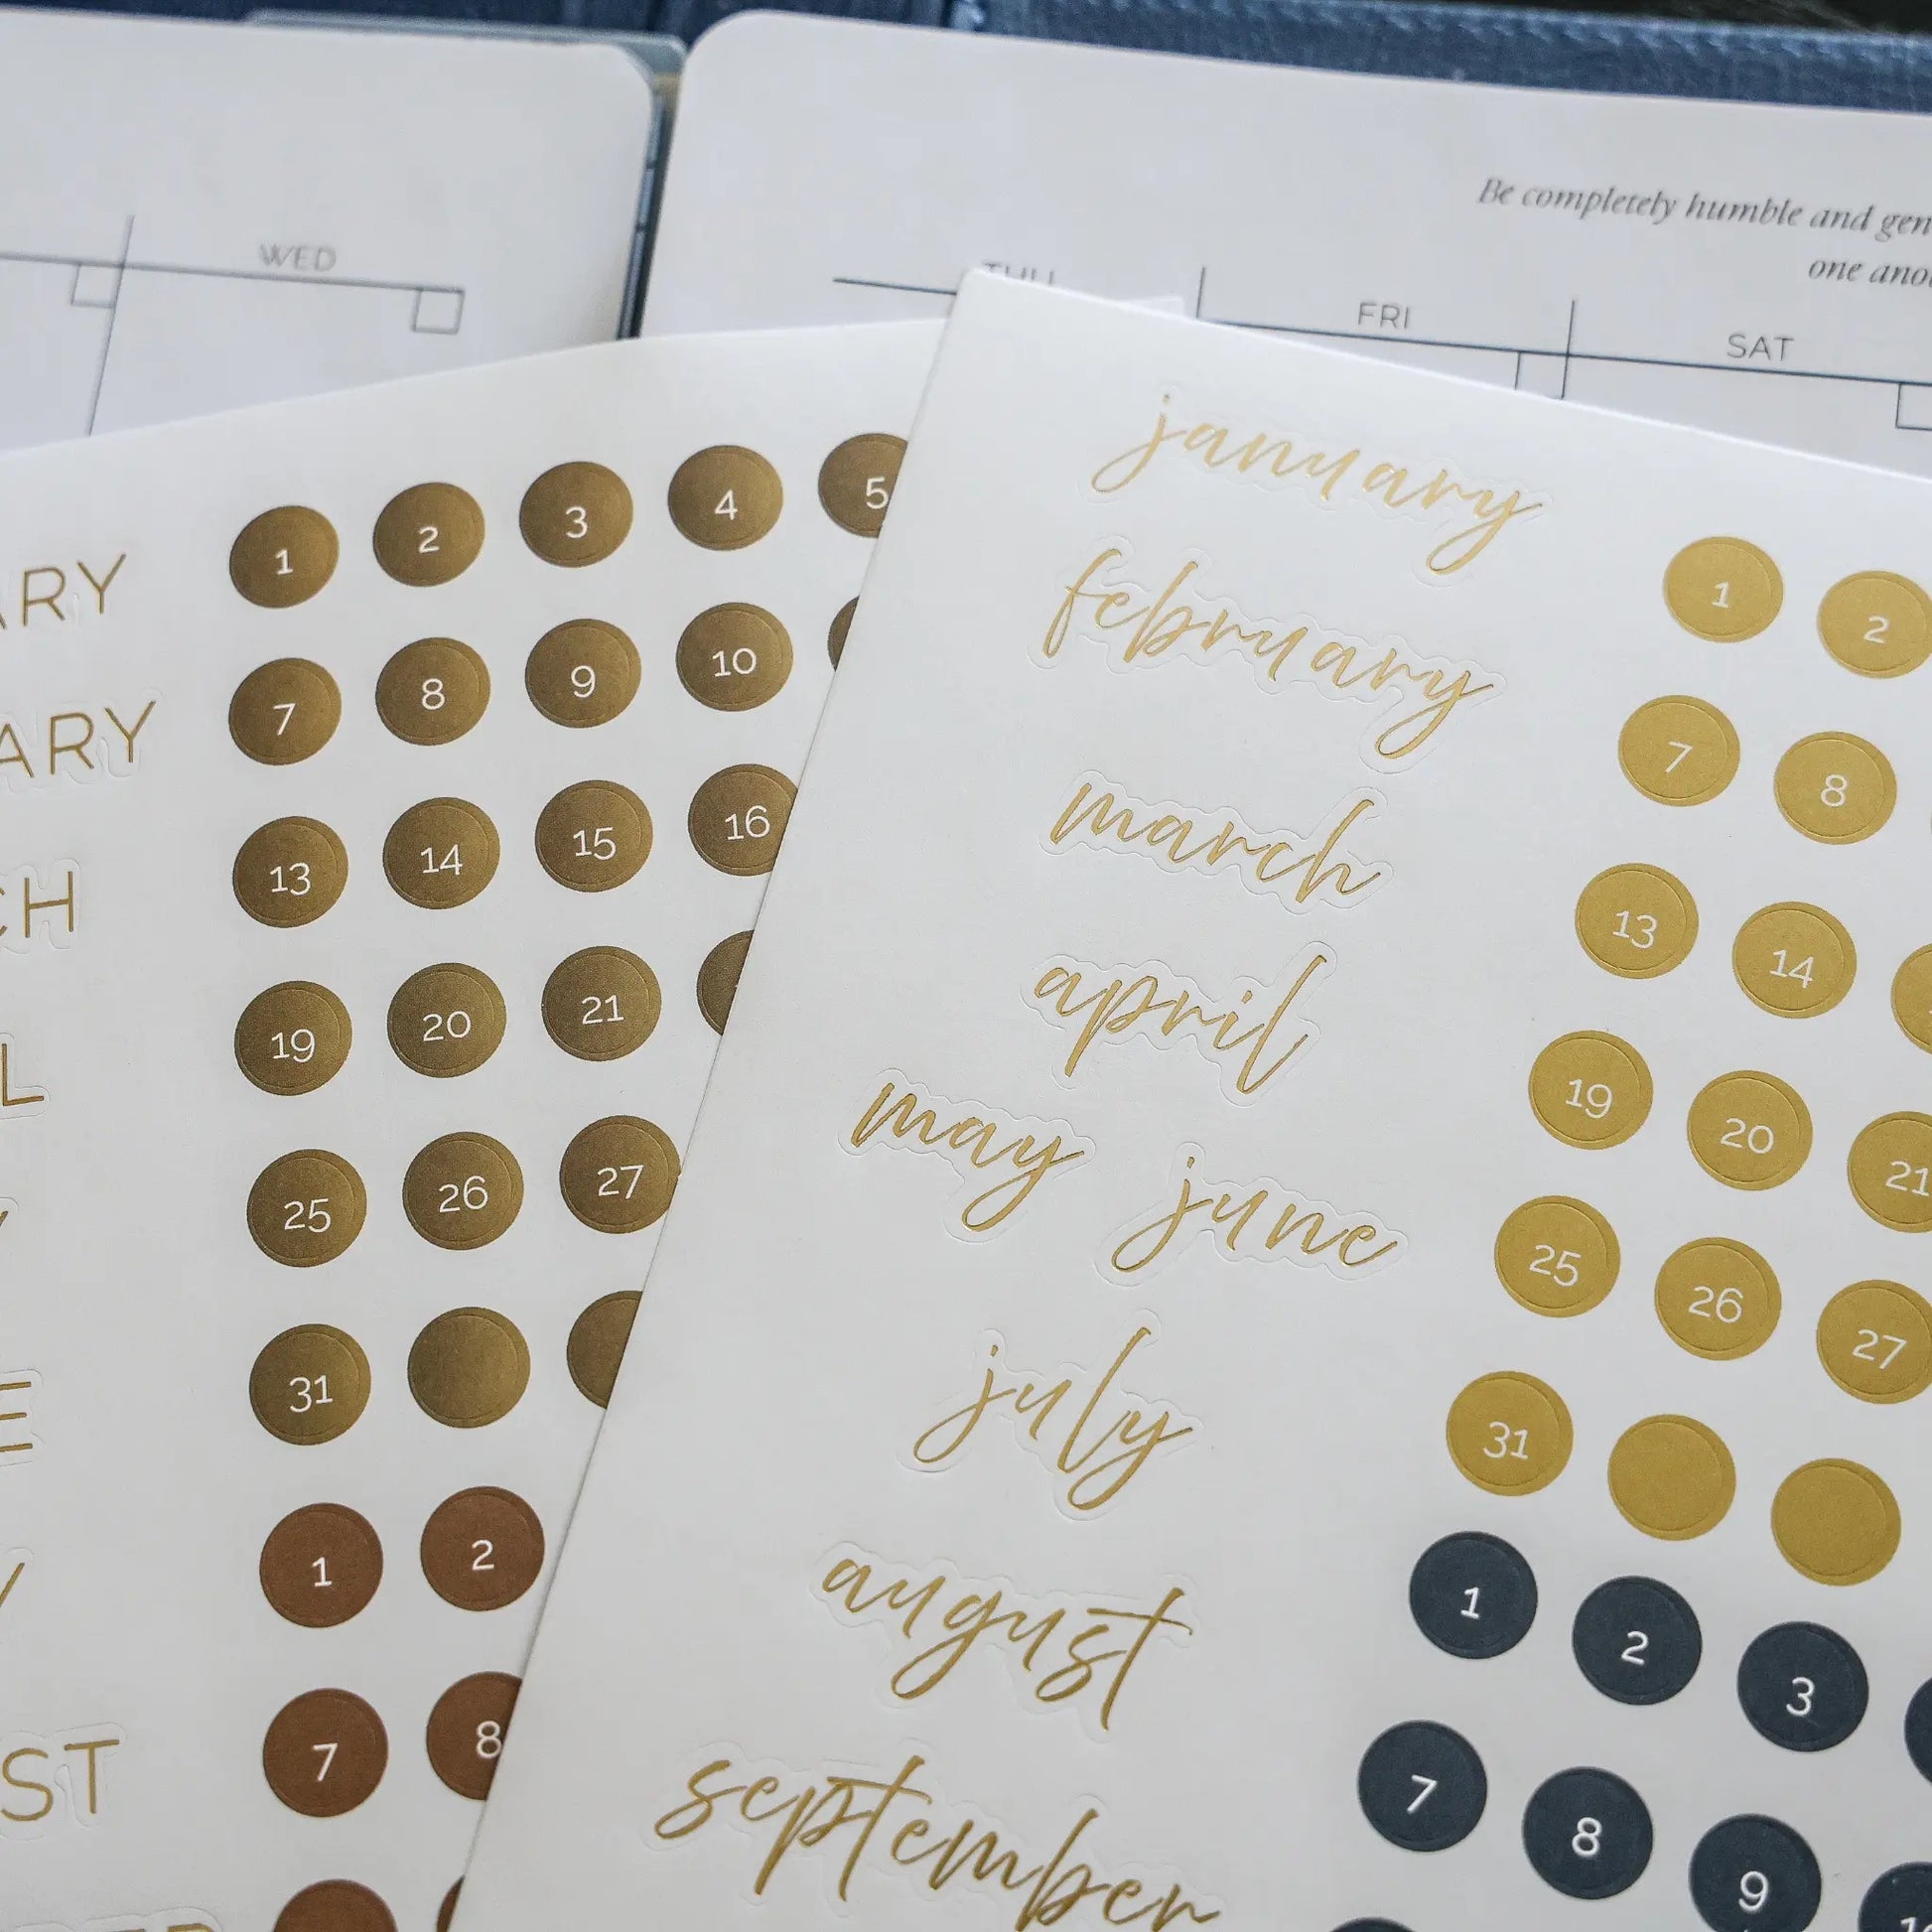 WED
Be completely humble and gen
one ano
THU
FRI
SAT
ARY
ARY
CH
L
Y
E
Y
ST
1 2 3 4 5
7 8 9 10
13 14 15 16
19 20 21
25 26 27
31
1 2
7 8
january
february
march
april
may june
july
august
september
1 2
7 8
13 14
19 20 21
25 26 27
31
1 2 3
7 8 9